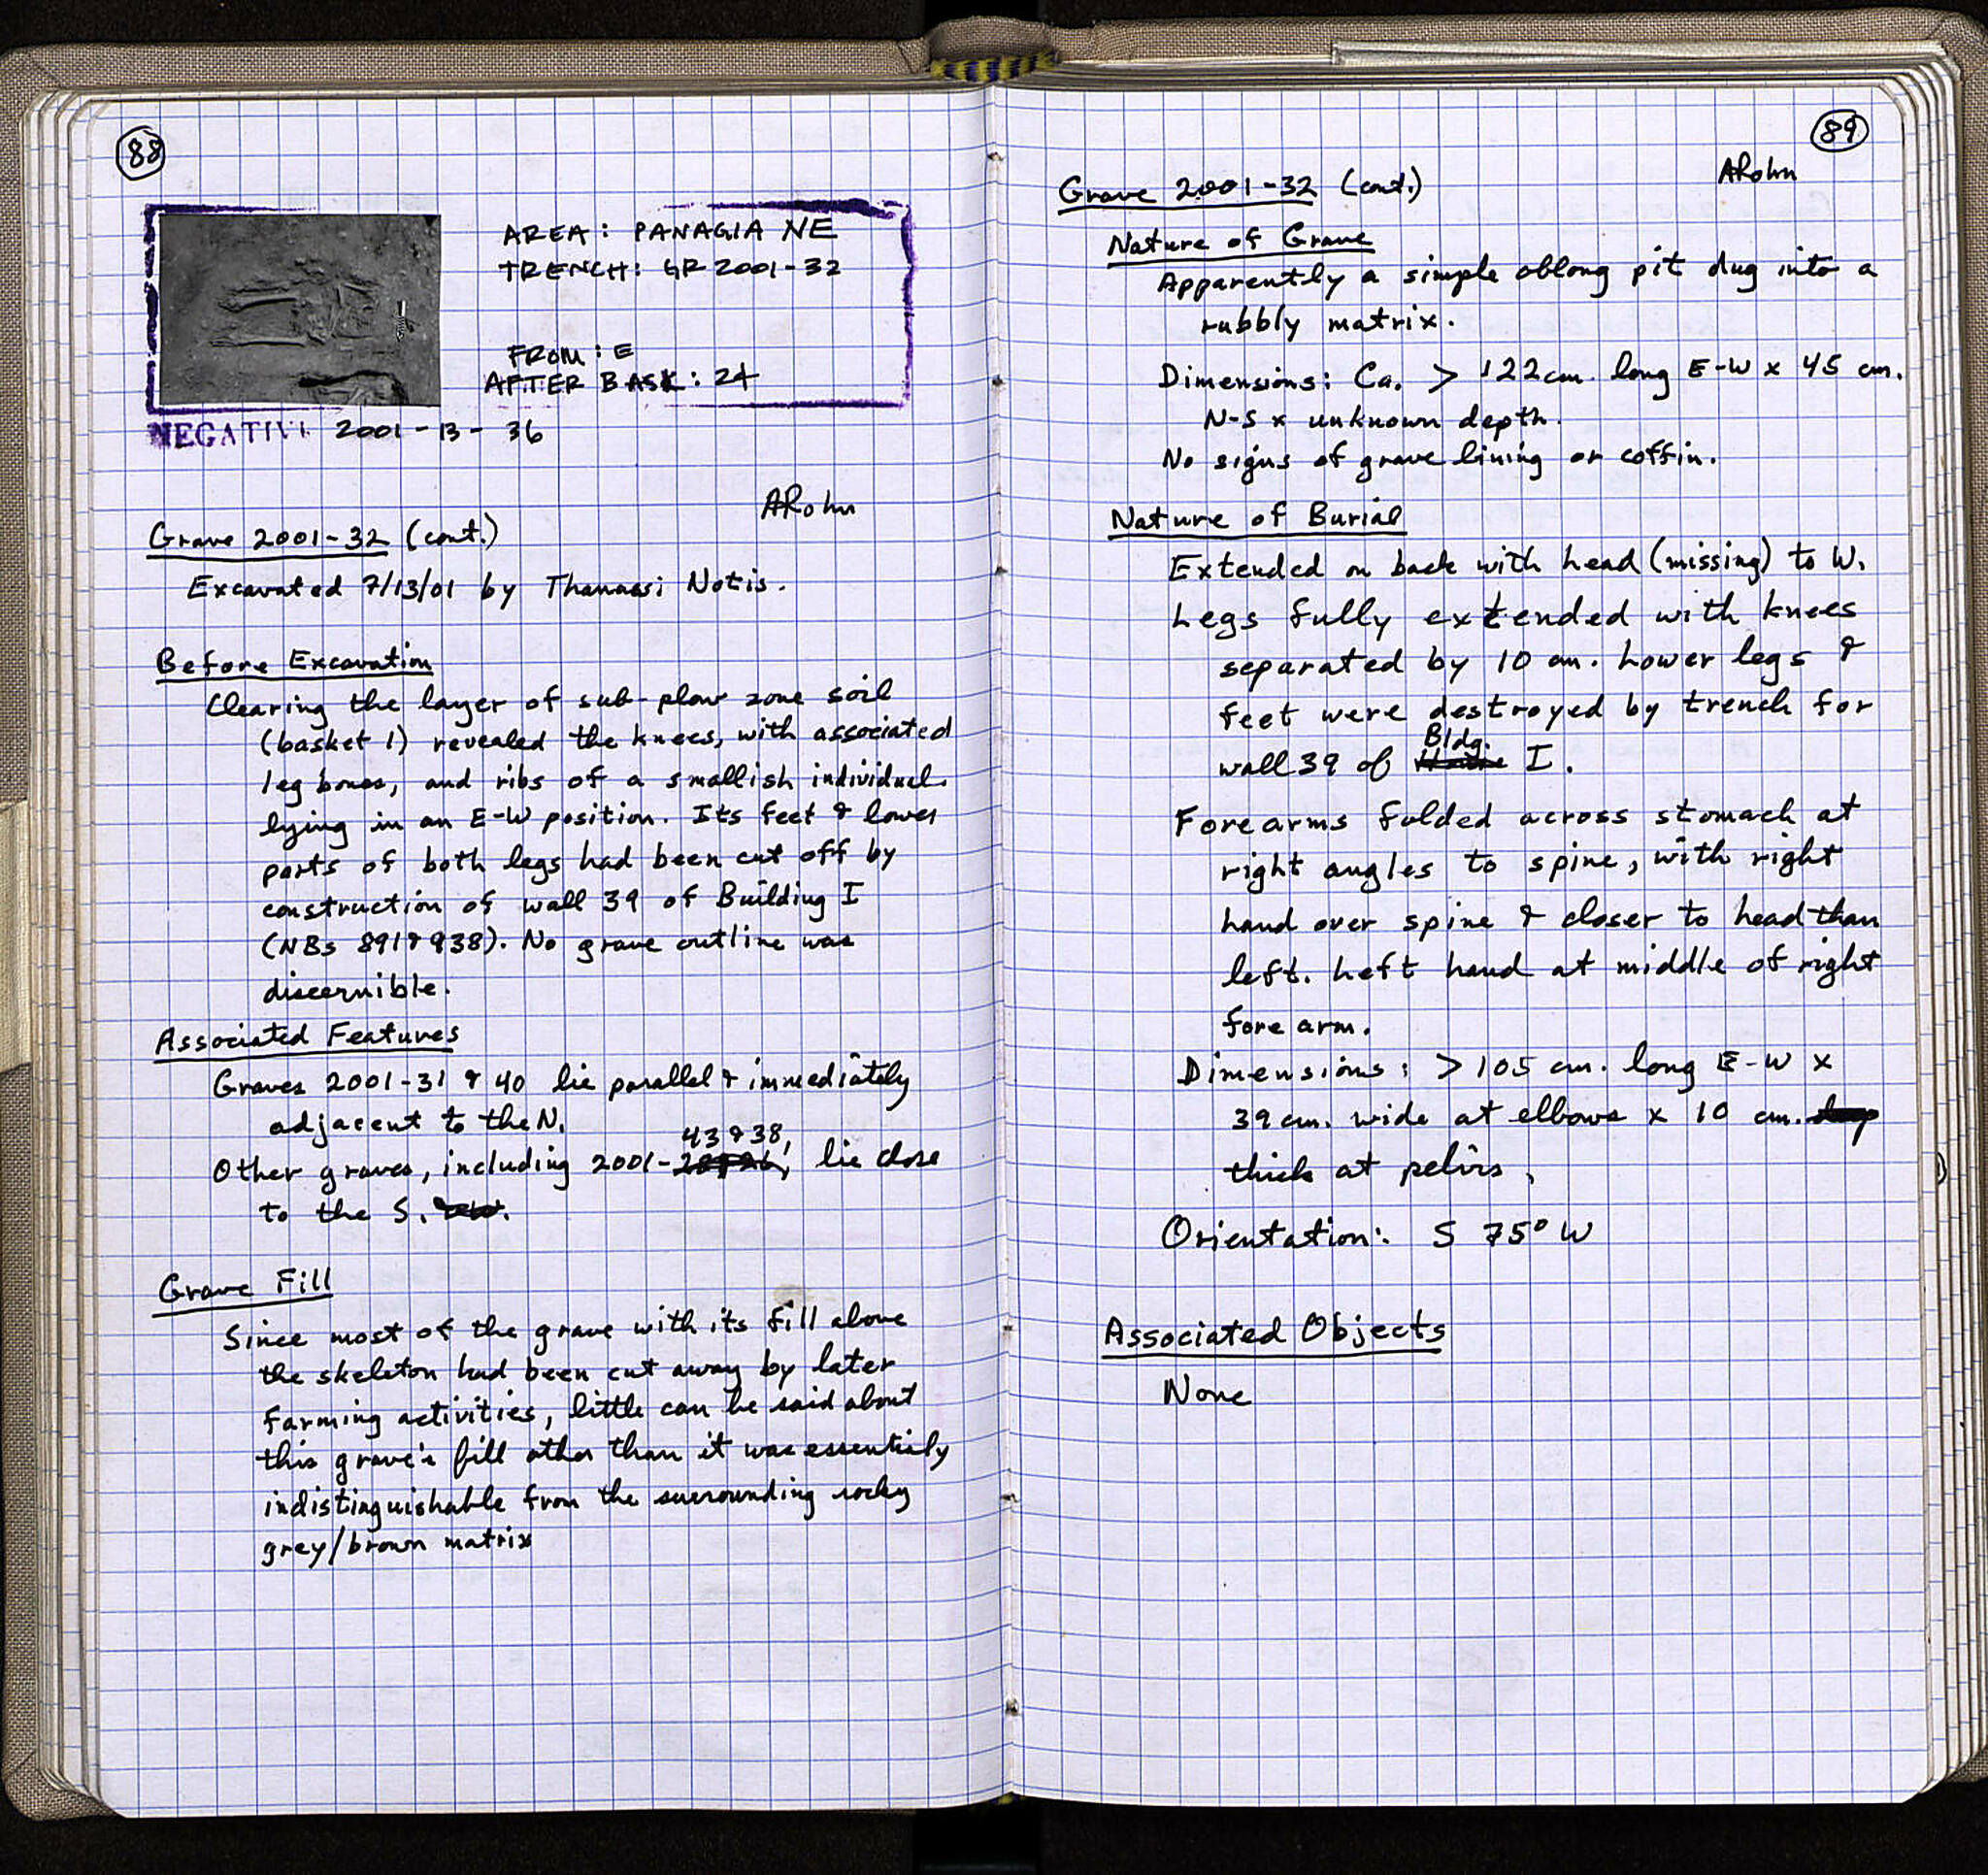 88
AREA: PANAGIA NE
TRENCH: GR 2001-32
FROM: E
AFTER BASK: 24
NEGATIVE 2001-13-36
ARohn
Grave 2001-32 (cont.)
Excavated 7/13/01 by Thanassi Notis.
Before Excavation
Clearing the layer of sub-plow zone soil
(basket 1) revealed the knees, with associated
leg bones, and ribs of a smallish individual
lying in an E-W position. Its feet & lower
parts of both legs had been cut off by
construction of wall 39 of Building I
(NBs 891 & 938). No grave outline was
discernible.
Associated Features
Graves 2001-31 & 40 lie parallel & immediately
adjacent to the N.
43 & 38,
Other graves, including 2001- lie close
to the S.
Grave Fill
Since most of the grave with its fill above
the skeleton had been cut away by later
farming activities, little can be said about
this grave's fill other than it was essentialy
indistinguishable from the surrounding rocky
grey/brown matrix
89
ARohn
Grave 2001-32 (cont.)
Nature of Grave
Apparently a simple oblong pit dug into a
rubbly matrix.
Dimensions: Ca. > 122 cm. long E-W x 45 cm.
N-S x unknown depth.
No signs of grave lining or coffin.
Nature of Burial
Extended on back with head (missing) to W.
Legs fully extended with knees
separated by 10 cm. Lower legs &
feet were destroyed by trench for
Bldg.
wall 39 of I.
Forearms folded across stomach at
right angles to spine, with right
hand over spine & closer to head than
left. Left hand at middle of right
fore arm.
Dimensions: > 105 cm. long E-W x
39 cm. wide at elbows x 10 cm. deep
thick at pelvis.
Orientation: S 75° W
Associated Objects
None